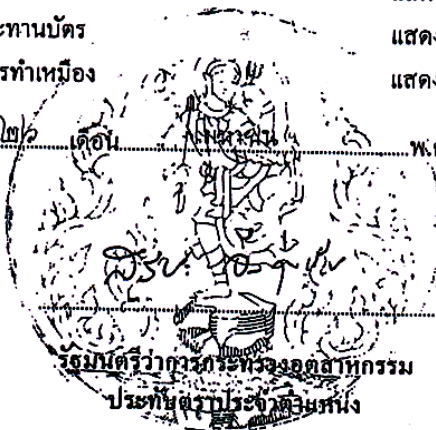 ะทานบัตร แสดง
รทำเหมือง แสดง
๒๖ เดือน เมษายน พ.
รัฐมนตรีว่าการกระทรวงอุตสาหกรรม
ประทับตราประจำตำแหน่ง